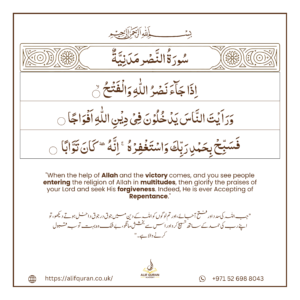 بِسْمِ اللهِ الرَّحْمٰنِ الرَّحِيْمِ
سُوْرَةُ النَّصْرِ مَدَنِيَّةٌ
اِذَا جَآءَ نَصْرُ اللهِ وَالْفَتْحُ
وَرَاَيْتَ النَّاسَ يَدْخُلُوْنَ فِيْ دِيْنِ اللهِ اَفْوَاجًا
فَسَبِّحْ بِحَمْدِ رَبِّكَ وَاسْتَغْفِرْهُ ۚ اِنَّهٗ كَانَ تَوَّابًا
"When the help of Allah and the victory comes, and you see people
entering the religion of Allah in multitudes, then glorify the praises of
your Lord and seek His forgiveness. Indeed, He is ever Accepting of
Repentance."
https://alifquran.co.uk/
ALIF QURAN
+971 52 698 8043